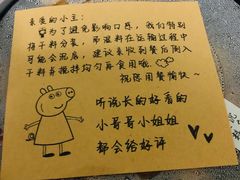 亲爱的小主:
为了避免影响口感,我们特别
将干料分装,吊湿料在运输过程中
可能会泡烂,建议亲收到餐后倒入
干料再搅拌均匀再食用哦
祝您用餐愉快~
听说长的好看的
小哥哥小姐姐
都会给好评